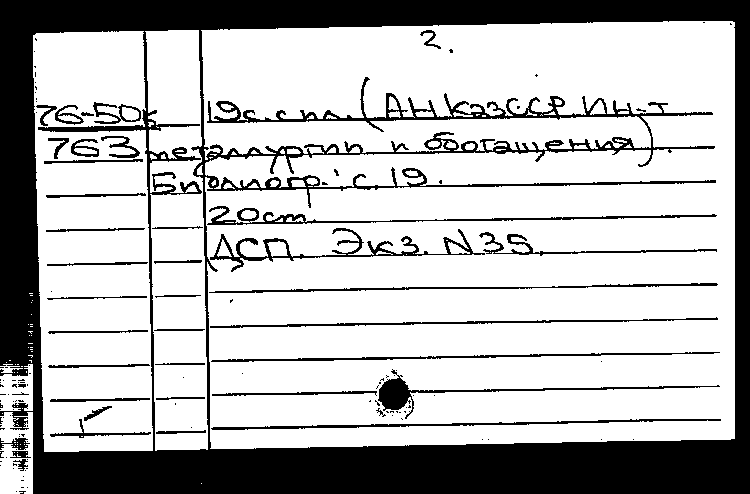 2.
76-50к 19с. с ил. (АН КазССР. Ин-т
763 металлургии и обогащения).
Библиогр.: с. 19.
20 cm.
ДСП. Экз. N35.